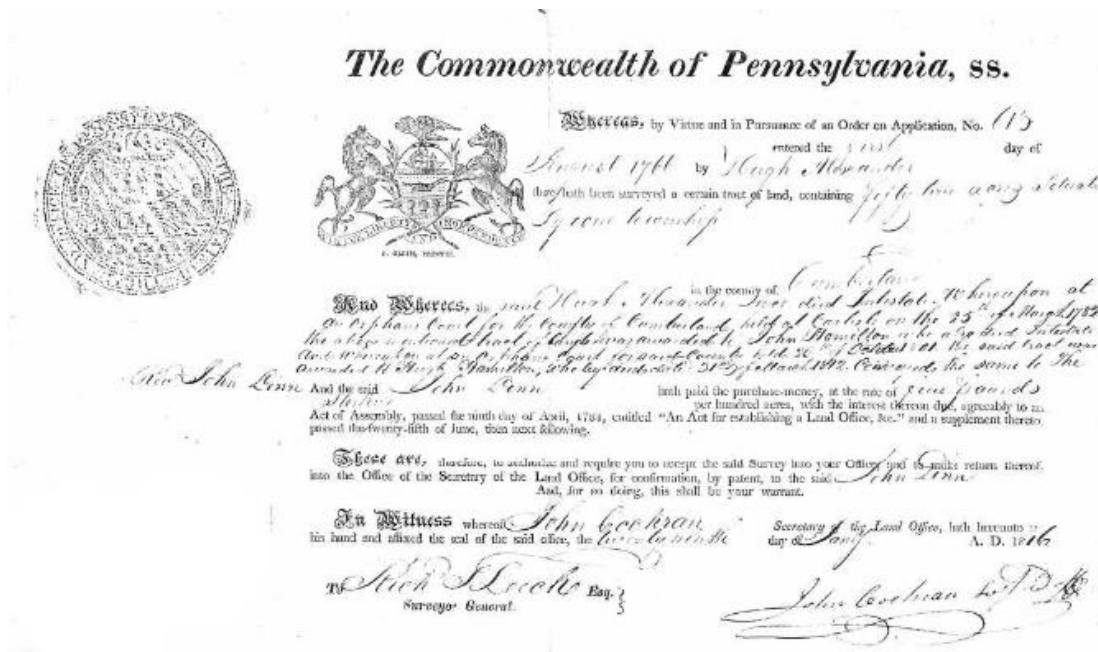 The Commonwealth of Pennsylvania, ss.
Whereas, by Virtue and in Pursuance of an Order on Application, No.
entered the first day of
August 1766 by Hugh Alexander
there hath been surveyed a certain tract of land, containing fifty
Tyrone township
in the county of Cumberland
And Whereas, the said Hugh Alexander died Intestate Whereupon at
an Orphans Court for the County of Cumberland held at Carlisle on the 25th of March
the above mentioned tract of was awarded to John Hamilton who also died Intestate
And Whereupon at an Orphans Court for said County held the said tract was
awarded to Hugh Hamilton, who by deed dated of March Conveyed the same to The
Rev John Linn And the said John Linn hath paid the purchase-money, at the rate of five Pounds
Sterling per hundred acres, with the interest thereon due, agreeably to an
Act of Assembly, passed the ninth day of April, 1784, entitled "An Act for establishing a Land Office, &c." and a supplement thereto
passed the twenty-fifth of June, then next following.
These are, therefore, to authorize and require you to accept the said Survey into your Office, and to make return thereof
into the Office of the Secretary of the Land Office, for confirmation, by patent, to the said John Linn
And, for so doing, this shall be your warrant.
In Witness whereof John Cochran Secretary of the Land Office, hath hereunto
his hand and affixed the seal of the said office, the twenty ninth day of Jany A. D. 1816
To Rich T Leech Esq.
Surveyor General.
John Cochran